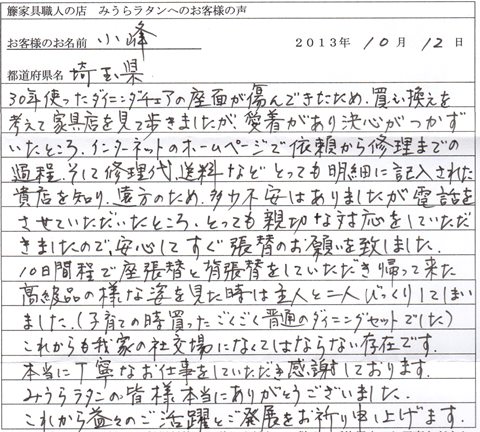 籐家具職人の店　みうらラタンへのお客様の声
お客様のお名前 小峰 2013年 10月 12日
都道府県名 埼玉県
30年使ったダイニングチェアの座面が傷んできたため、買い換えを
考えて家具店を見て歩きましたが、愛着があり決心がつかず
いたところ、インターネットのホームページで依頼から修理までの
過程、そして修理代、送料など とっても明細に記入された
貴店を知り、遠方のため、多少不安はありましたが電話を
させていただいたところ、とっても親切な対応をしていただ
きましたので、安心してすぐ張替のお願いを致しました。
10日間程で座張替と背張替をしていただき帰って来た
高級品の様な姿を見た時は主人と二人びっくりしてしまい
ました。(子育ての時買ったごくごく普通のダイニングセットでした)
これからも我家の社交場になくてはならない存在です。
本当に丁寧なお仕事をしていただき感謝しております。
みうらラタンの皆様本当にありがとうございました。
これから益々のご活躍とご発展をお祈り申し上げます。